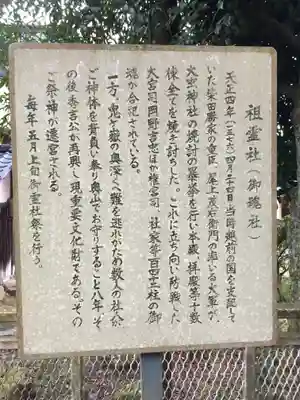 祖霊社（御霊社）
天正四年（一五七六）四月二十四日、当時越前の国を支配して
いた柴田勝家の重臣、
の率いる大軍が、
大虫神社の焼討の暴挙を行い本殿、拝殿等十数
棟全てを焼き討ちした。これに立ち向い防戦した
大宮司岡野吉忠ほか権宮司、社家等百四十三柱の御
魂が合祀されている。
一方、鬼ヶ嶽の奥深くへ難を逃れたため数人の社人が
ご神体を背負い乗り奥山でお守りすること八年、そ
の後秀吉公が再興し、現重要文化財である、その
ご祭神が還宮される。
毎年五月上旬御霊社祭を行う。